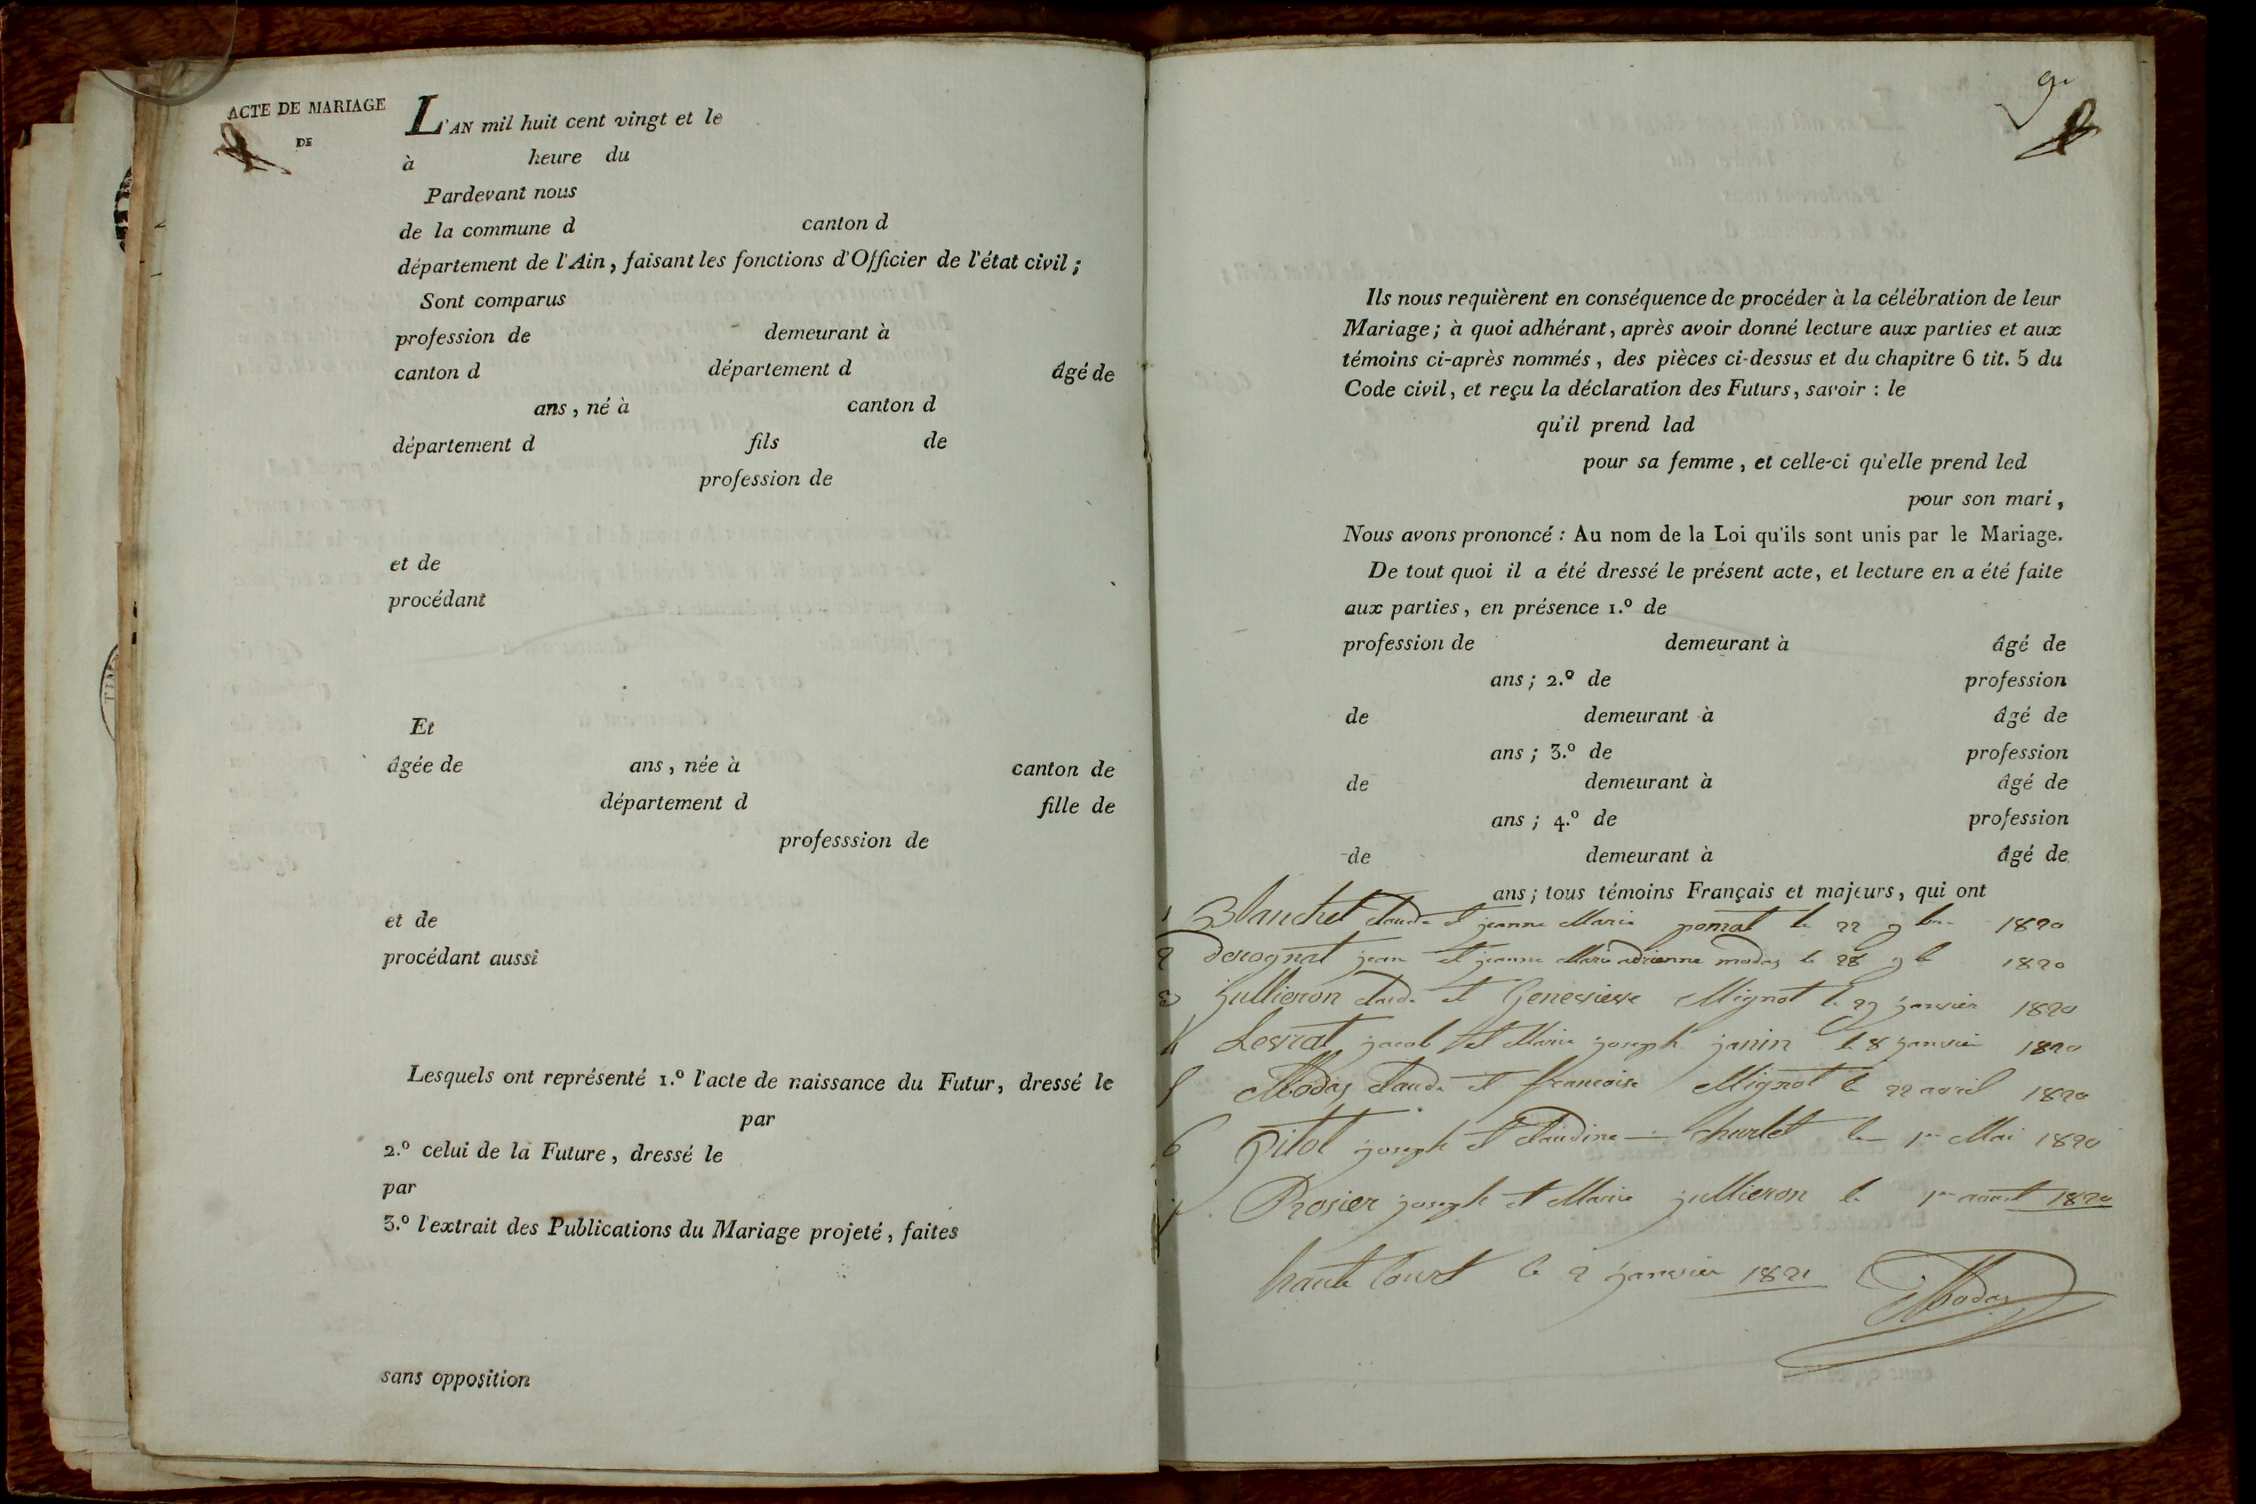 ACTE DE MARIAGE
DE
L'AN mil huit cent vingt et le
à heure du
Pardevant nous
de la commune d canton d
département de l'Ain, faisant les fonctions d'Officier de l'état civil;
Sont comparus
profession de demeurant à
canton d département d âgé de
ans, né à canton d
département d fils de
profession de
et de
procédant
Et
âgée de ans, née à canton de
département d fille de
professsion de
et de
procédant aussi
Lesquels ont représenté 1.º l'acte de naissance du Futur, dressé le
par
2.º celui de la Future, dressé le
par
3.º l'extrait des Publications du Mariage projeté, faites
sans opposition
Ils nous requièrent en conséquence de procéder à la célébration de leur
Mariage; à quoi adhérant, après avoir donné lecture aux parties et aux
témoins ci-après nommés, des pièces ci-dessus et du chapitre 6 tit. 5 du
Code civil, et reçu la déclaration des Futurs, savoir : le
qu'il prend lad
pour sa femme, et celle-ci qu'elle prend led
pour son mari,
Nous avons prononcé : Au nom de la Loi qu'ils sont unis par le Mariage.
De tout quoi il a été dressé le présent acte, et lecture en a été faite
aux parties, en présence 1.º de
profession de demeurant à âgé de
ans; 2.º de profession
de demeurant à âgé de
ans; 3.º de profession
de demeurant à âgé de
ans; 4.º de profession
de demeurant à âgé de
ans; tous témoins Français et majeurs, qui ont
1 Blanchet Claude et jeanne Marie pomat le 22 9bre 1820
2 derognat jean et jeanne Marie adrienne modas le 28 9b 1820
3 Jullieron Claude et Genevieve Mignot le 29 janvier 1820
4 Levrat jacob et Marie joseph janin le 8 janvier 1820
5 Modas Claude et francoise Mignot le 22 avril 1820
6 pitol joseph et Claudine Charlet le 1er Mai 1820
7 Rosier joseph et Marie jullieron le 1er aout 1820
haute Court le 2 janvier 1821 Modas